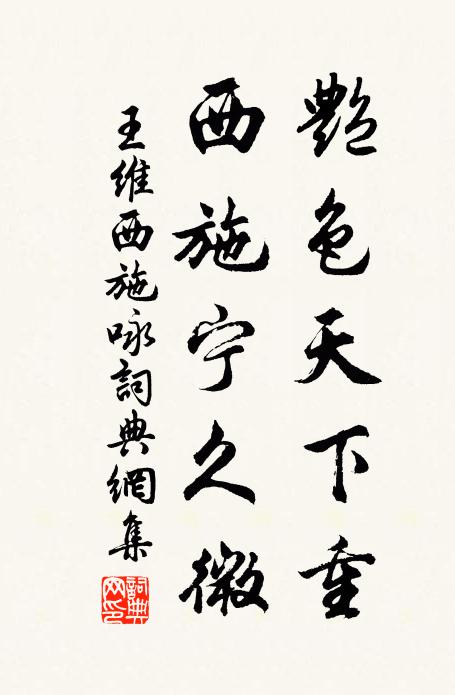 艷色天下重
西施宁久微
王维西施咏詞典網集
詞典
网印